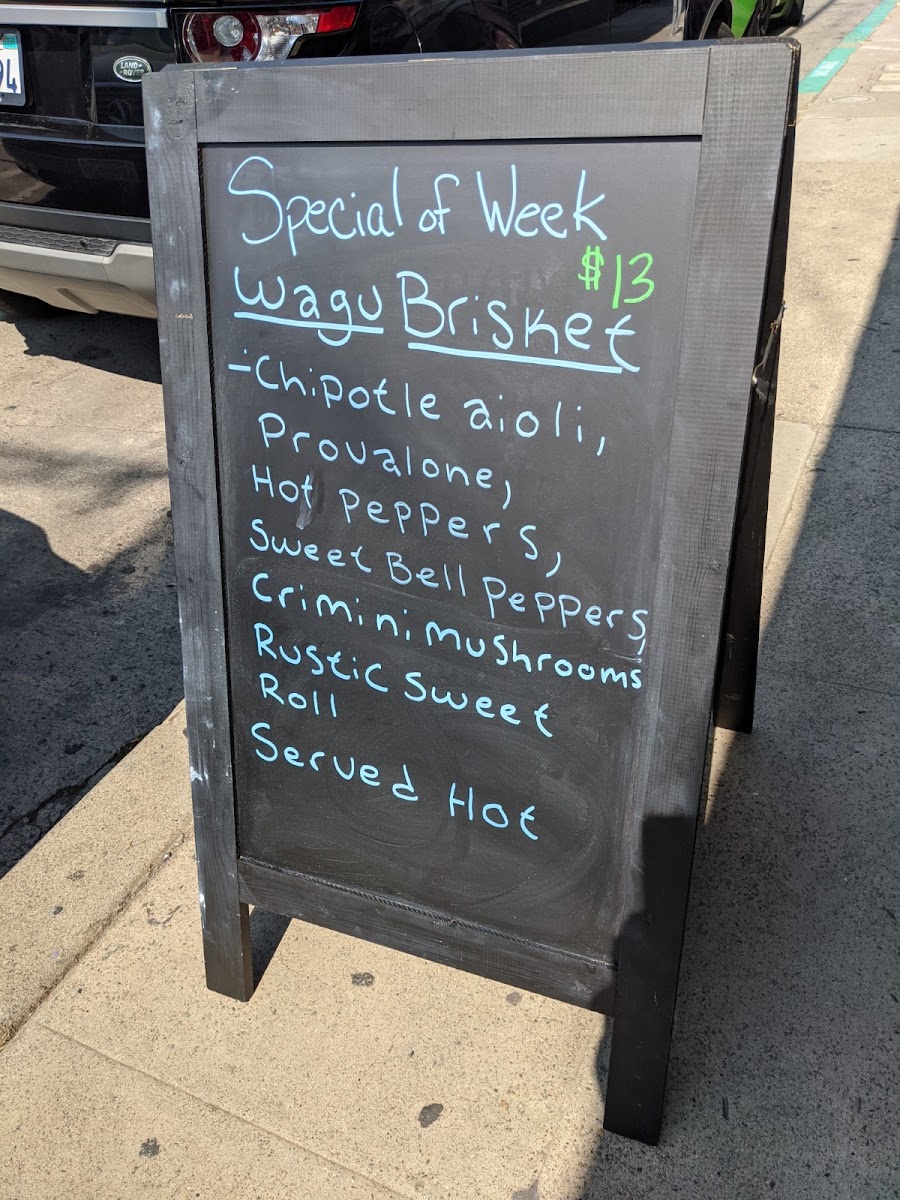 LAND-
ROVER
Special of Week
$13
Wagu Brisket
-Chipotle aioli,
Provalone,
Hot Peppers,
Sweet Bell Peppers,
Crimini Mushrooms
Rustic Sweet
Roll
Served Hot